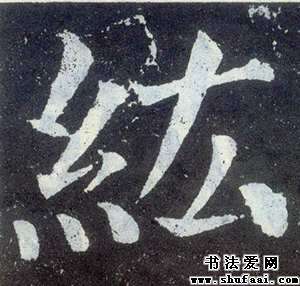 紘
书法爱网
www.shufaai.com